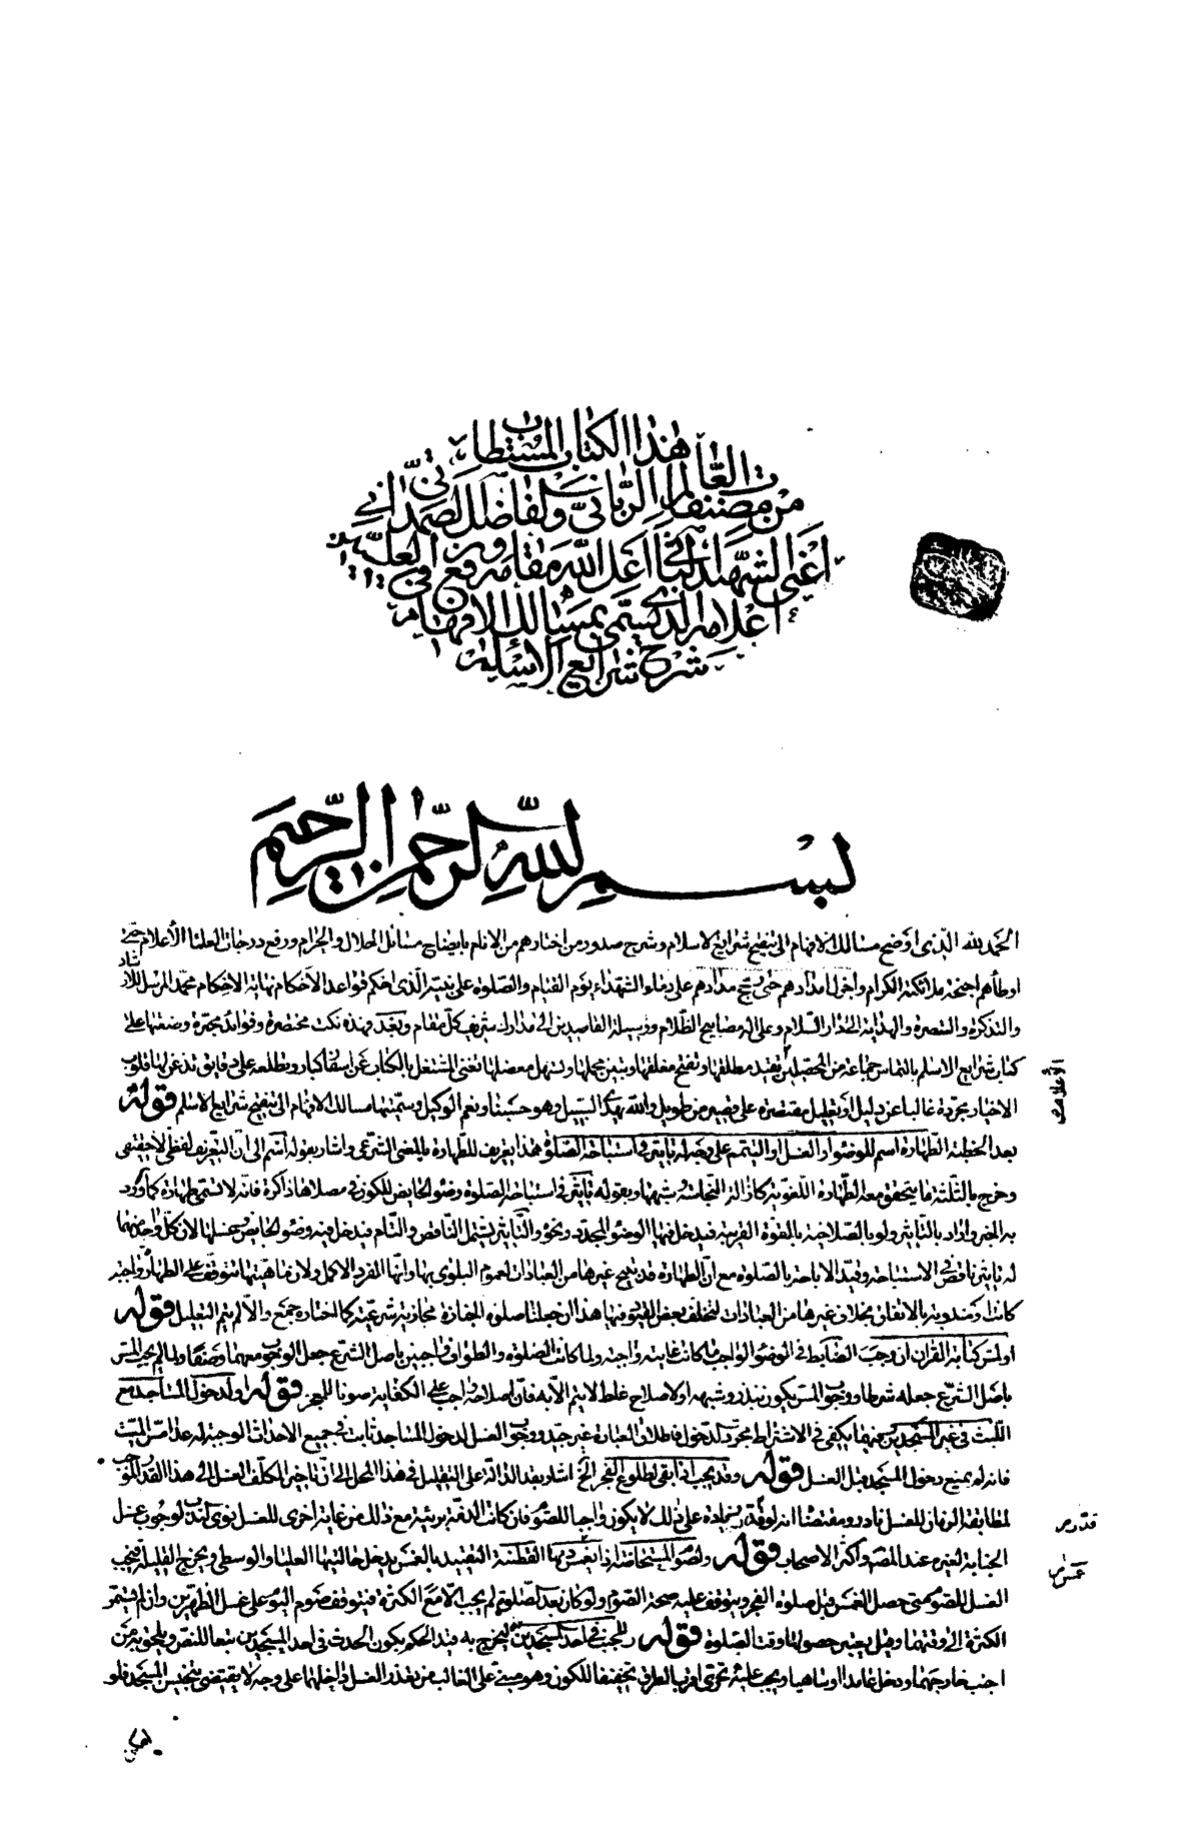 هذا الكتاب المستطاب
من مصنفات العالم الرباني والفاضل الصمداني
اعني الشهيد الثاني اعلى الله مقامه ورفع في العليين
اعلامه الذي يسمى بمسالك الافهام
شرح شرايع الاسلام
بسم الله الرحمن الرحيم
الحمد لله الذى اوضح مسالك الافهام الى تنقيح شرايع الاسلام وشرح صدور من اختارهم من الانام بايضاح مسائل الحلال والحرام ورفع درجات العلماء الأعلام حتى
اوطأهم اجنحة ملائكته الكرام واجرى مدادهم حتى رجح مدادهم على دماء الشهداء يوم القيام والصلوة على نبيه الذى احكم قواعد الاحكام نهاية الاحكام محمد المرسل للارشاد
والتذكرة والتبصرة والهداية الى دار السلام وعلى اله مصابيح الظلام ووسيلة القاصدين الى مدارك شريف كل مقام وبعد فهذه نكت مختصرة وفوائد محررة وضعتها على
كتاب شرايع الاسلام بالتماس جماعة من المحصلين تقيد مطلقها وتفتح مغلقها وتبين مجملها وتسهل معضلها تغنى المشتغل بالكتاب عن اسفار كبار وتطلعه على دقايق تذعن لها قلوب
الاخيار مجردة غالبا عن دليل او تعليل مقتصرة على قصير من طويل والله يهدى السبيل وهو حسبنا ونعم الوكيل وسميتها مسالك الافهام الى تنقيح شرايع الاسلام قوله
بعد الخطبة الطهارة اسم للوضوء او الغسل او التيمم على وجه له تاثير فى استباحة الصلوة هذا تعريف للطهارة بالمعنى الشرعى واشار بقوله اسم الى ان التعريف لفظى لا حقيقى
وخرج بالثلثة ما يتحقق معه الطهارة اللغوية كازالة النجاسة وشبهها وبقوله تاثير فى استباحة الصلوة وضوء الحايض للكون فى مصلاها ذاكرة فانه لا تسمى طهارة كما ورد
به الخبر واراد بالتاثير ولو بالصلاحية بالقوة القريبة فيدخل فيها الوضوء المجدد ونحوه والتاثير يشتمل الناقص والتام فيدخل فيه وضوء الحايض وغسلها لان كل واحد منهما
له تاثير ناقص فى الاستباحة وقيد الاباحة بالصلوة مع ان الطهارة قد تبيح غيرها من العبادات لعموم البلوى بها وانها الفرد الاكمل ولان ماهيتها تتوقف على الطهارة واجبة
كانت او مندوبة بالاتفاق بخلاف غيرها من العبادات لتخلف بعض القيود فيها هذا ان جعلنا صلوة الجنازة مجازية شرعية كما اختاره جمع والا لم يتم التعليل قوله
او لمس كتابة القران ان وجب الضابط فى الوضوء الواجب ما كانت غايته واجبة ولما كانت الصلوة والطواف واجبين باصل الشرع جعل الوجوب معهما وصفا ولما لم يجب المس
باصل الشرع جعله شرطا ووجوب المس يكون بنذر وشبهه او لاصلاح غلط لا يتم الا به فان اصلاحه واجب على الكفاية صونا للمعجز قوله او لدخول المساجد مع
اللبث فى غير المسجدين وفيهما يكفى فى الاشتراط مجرد الدخول فاطلاق العبارة غير جيد ووجوب الغسل لدخول المساجد ثابت فى جميع الاحداث الموجبة له عدا مس الميت
فانه لم يمنع دخول المسجد قبل الغسل قوله وقد يجب اذا بقى لطلوع الفجر الخ اشار بقد الدالة على التقليل فى هذا المحل الى ان تاخير المكلف الغسل الى هذا القدر الموجب
لمطابقة الزمان للغسل نادر ومقتضاه انه لو قدمه بزيادة على ذلك لا يكون واجبا للصوم فان كانت الذمة بريئة مع ذلك من غاية اخرى للغسل نوى الندب لوجوب غسل
الجنابة لغيره عند المصنف واكثر الاصحاب قوله ولصوم المستحاضة اذا غمس دمها القطنة التقييد بالغمس يدخل حالتيها العليا والوسطى ويخرج القليلة فيجب
الغسل للصوم متى حصل الغمس قبل صلوة الفجر ويتوقف عليه صحة الصوم ولو كان بعد الصلوة لم يجب الا مع الكثرة فيتوقف صوم اليوم على غسل الظهرين وان لم يستمر
الكثرة الى وقتهما وقيل يعتبر حصولها وقت الصلوة قوله للمجنب فى احد المسجدين ليخرج به قيد الحكم بكون الحدث فى احد المسجدين تبعا للنص ويلحق به من
اجنب خارجهما ودخل عامدا او ساهيا ويجب عليه تحرى اقرب الطرق تخفيفا للكون وهو مبنى على الغالب من تعذر الغسل داخلهما على وجه لا يقتضى تنجيس المسجد فلو